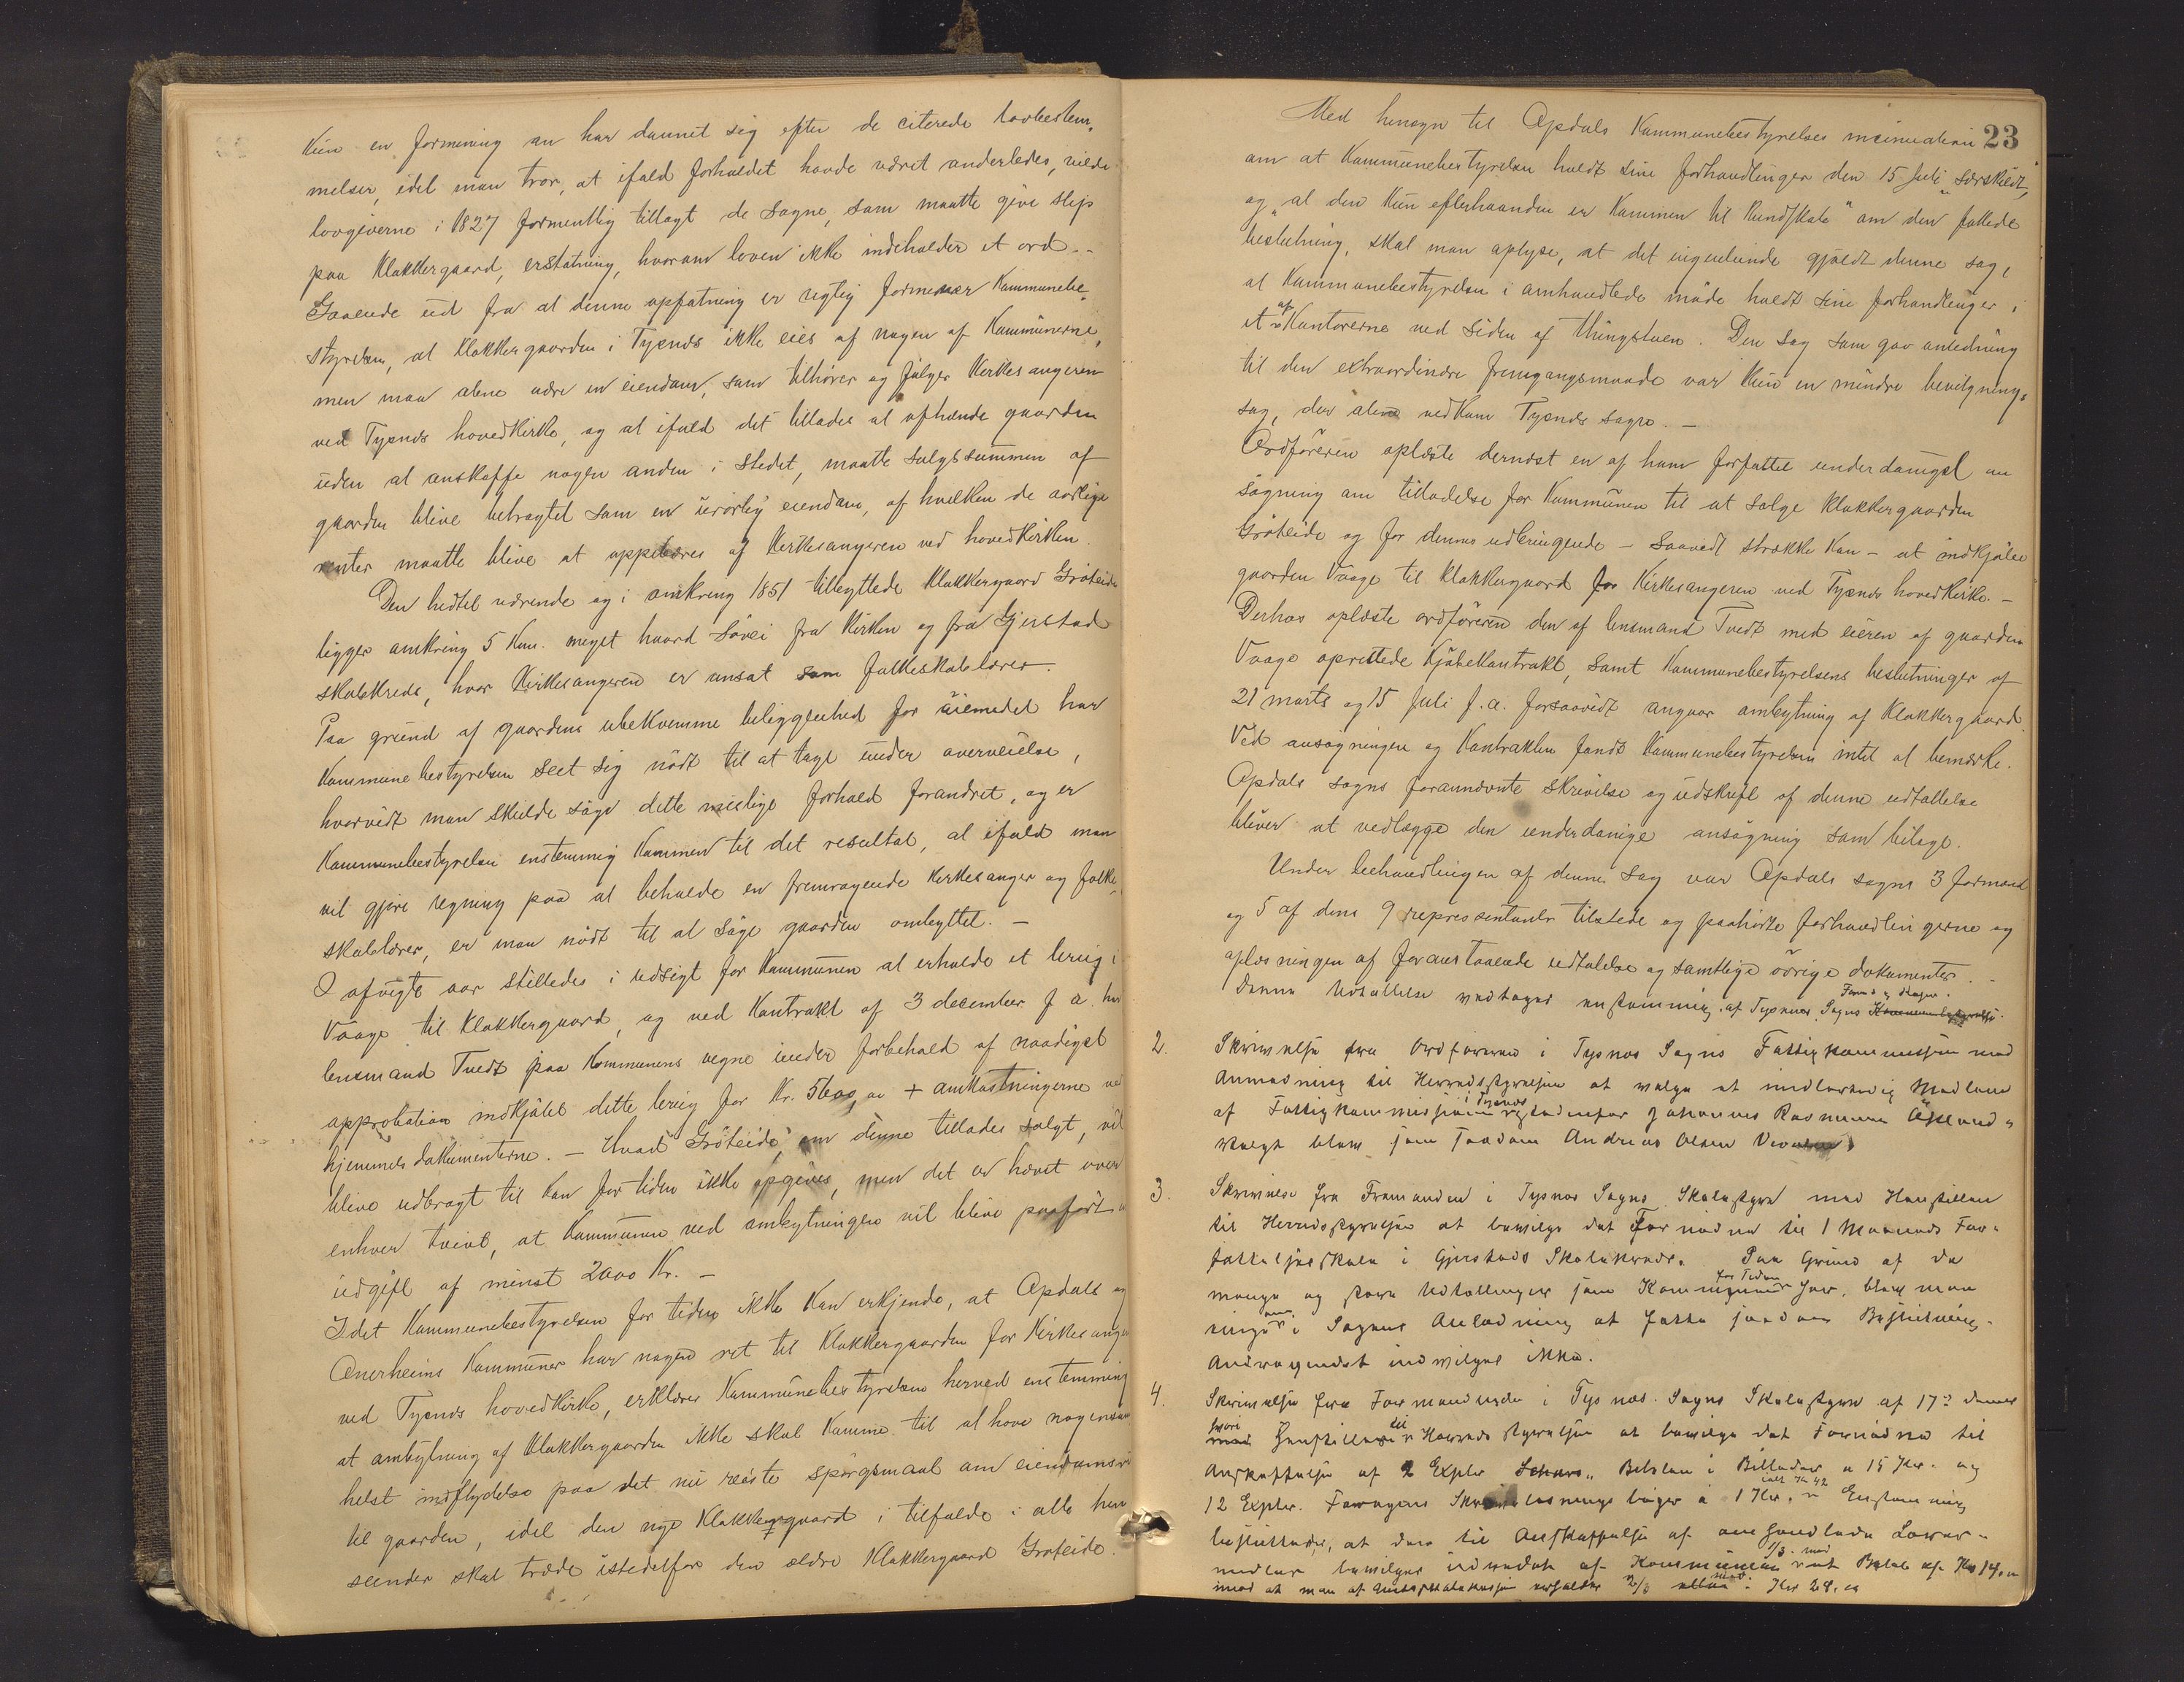 Kun en formening an har dannet sig efter de citerede lovbestem-
melser, idet man tror, at ifald forholdet havde været anderledes, vilde
lovgiverne i 1827 formentlig tillagt de sogne, som maatte give slip
paa Klokkergaard, erstatning, hvorom loven ikke indeholder et ord. -
Gaaende ud fra at denne opfatning er rigtig formener Kommunebe-
styrelsen, at Klokkergaarden i Tysnæs ikke eies af nogen af Kommunerne,
men maa alene være en eiendom, som tilhører og følger Kirkesangeren
ved Tysnæs hovedkirke, og at ifald det tillades at afhænde gaarden
uden at anskaffe nogen anden i stedet, maatte salgssummen af
gaarden blive betragtet som en urørlig eiendom, af hvilken de aarlige
renter maatte blive at oppebæres af Kirkesangeren ved hovedkirken.
Den hidtil værende og i omkring 1851 tilbyttede Klokkergaard Gröteide
ligger omkring 5 Km. meget haard Søvei fra Kirken og fra Gjerstad
skolekreds, hvor Kirkesangeren er ansat som folkeskolelærer.
Paa grund af gaardens ubekvemme beliggenhed for øiemedet har
Kommunebestyrelsen seet sig nødt til at tage under overveielse,
hvorvidt man skulde søge dette mislige forhold forandret, og er
Kommunebestyrelsen enstemmig kommen til det resultat, at ifald man
vil gjøre regning paa at beholde en fremragende Kirkesanger og folke-
skolelærer, er man nødt til at søge gaarden ombyttet. -
I afvigte aar stilledes i udsigt for Kommunen at erholde et brug i
Vaage til Klokkergaard, og ved Kontrakt af 3 december f. a. har
lensmand Tvedt paa Kommunens vegne under forbehold af naadigst
approbation indkjøbt dette brug for Kr. 5600,00 + omkostningerne ved
hjemmelsdokumenterne. - Hvad "Gröteide", om denne tillades solgt, vil
blive udbragt til kan for tiden ikke opgives, men det er hævet over
enhver tvivl, at Kommunen ved ombytningen vil blive paaført
udgift af minst 2000 Kr. -
Idet Kommunebestyrelsen for tiden ikke kan erkjende, at Opdals og
Onerheims Kommuner har nogen ret til Klokkergaarden for Kirkesanger
ved Tysnæs hovedkirke, erklærer Kommunebestyrelsen herved enstemmig
at ombytning af Klokkergaarden ikke skal komme til at have nogensom
helst indflydelse paa det nu reiste spørgsmaal om eiendoms
til gaarden, idet den nye Klokkergaard i tilfælde i alle hen
seender skal træde istedetfor den ældre Klokkergaard Gröteide.
23
Med hensyn til Opdals Kommunebestyrelses insinuation
om at Kommunebestyrelsen holdt sine forhandlinger den 15 Juli "særskildt,"
og "at den kun efterhaanden er kommen til Kundskab" om den fattede
beslutning, skal man oplyse, at det ingenlunde gjaldt denne sag,
at Kommunebestyrelsen i omhandlede møde holdt sine forhandlinger i
et af Kontorerne ved siden af thingstuen. Den sag som gav anledning
til den extraordinære fremgangsmaade var kun en mindre bevilgnings-
sag, der alene vedkom Tysnæs sogn. -
Ordføreren oplæste dernæst en af ham forfattet underdanigst an
søgning om tilladelse for Kommunen til at sælge Klokkergaarden
Gröteide og for dennes udbringende - saavidt strække kan - at indkjøbe
gaarden Vaage til Klokkergaard for Kirkesangeren ved Tysnæs hovedkirke. -
Derhos oplæste ordføreren den af lensmand Tvedt med eieren af gaarden
Vaage oprettede Kjøbekontrakt, samt Kommunebestyrelsens beslutninger af
21 marts og 15 Juli f. a. forsaavidt angaar ombytning af Klokkergaard.
Ved ansøgningen og Kontrakten fandt Kommunebestyrelsen intet at bemærke.
Opdals sogns forannævnte skrivelse og udskrift af denne udtallelse
bliver at vedlægge den underdanige ansøgning som bilage.
Under behandlingen af denne sag var Opdals sogns 3 formænd
og 5 af dens 9 repræsentanter tilstede og paahørte forhandlingerne og
oplæsningen af foranstaaende udtalelse og samtlige øvrige dokumenter. -
Denne Udtallelse vedtages enstemmig af Tysnæs Sogns Kommunebestyrelse.
2. Skrivelse fra Ordføreren i Tysnæs Sogns Fattigkommission med
Anmodning til Herredsstyrelsen at vælge et midlertidig Medlem
af Fattigkommissionen i Tysnæs istedenfor Johannes Rasmusen Økland.
Valgt blev som saadan Andreas Olsen
3. Skrivelse fra Formanden i Tysnæs Sogns Skolestyre med Henstillen
til Herredsstyrelsen at bevilge det Fornødne til 1 Maaneds For-
sættelsesskole i Gjerstads Skolekreds. Paa Grund af de
mange og store Udtællinger som Kommunen for Tiden har, blev man
enige om i Sognets Anledning at fatte saadan Beslutning.
Andragendet indvilges ikke.
4. Skrivelse fra Formanden i Tysnæs Sogns Skolestyre af 17de dennes
hvori henstilles til Herredsstyrelsen at bevilge det Fornødne til
Anskaffelse af 2 Expler. Bibelen i Billeder a 15 Kr. og
12 Expler. Skrivelæsnings bøger a 1 Kr. ialt Kr 42. Enstemmig
besluttedes, at der til Anskaffelse af omhandlede Lærer-
midler bevilges udredet af Kommunen 1/3 med et Beløb af Kr 14,00
mod at man af Amtsskolekassen erholder 2/3 med Kr 28,00